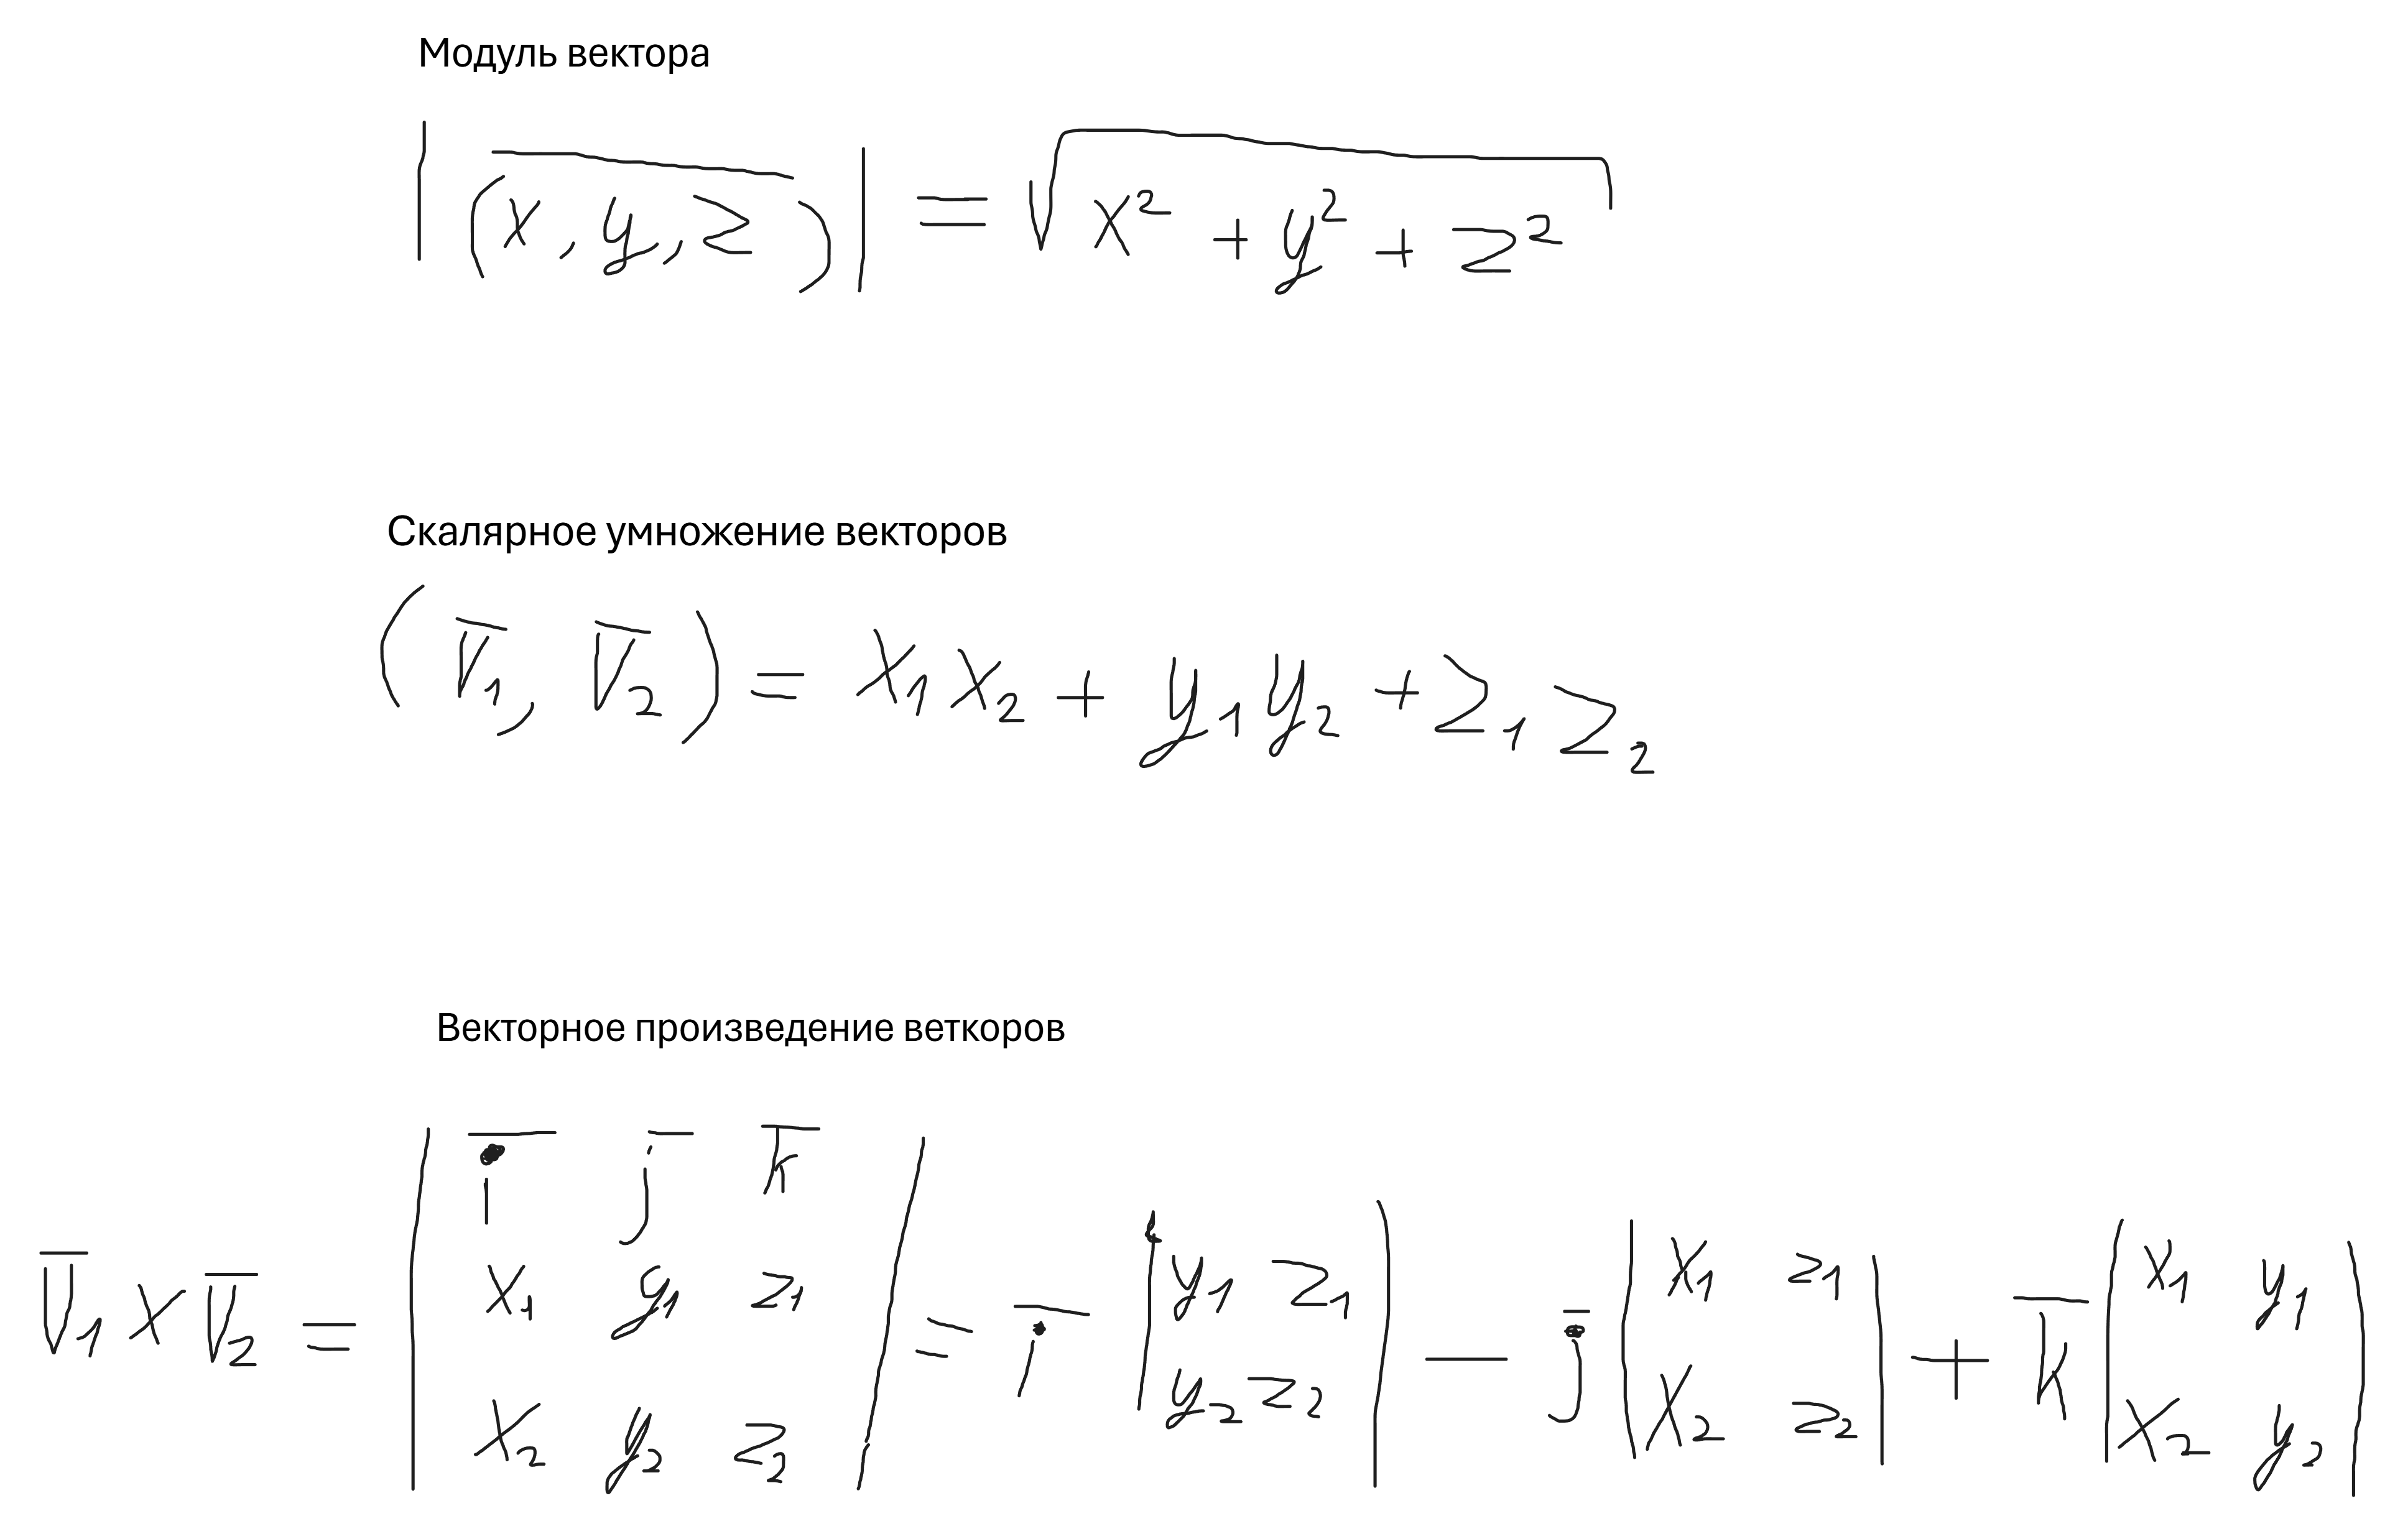 Модуль вектора
|(x, y, z)| = √(x² + y² + z²)
Скалярное умножение векторов
(V̅₁, V̅₂) = x₁x₂ + y₁y₂ + z₁z₂
Векторное произведение веткоров
V̅₁ × V̅₂ = | i̅ j̅ k̅ ; x₁ y₁ z₁ ; x₂ y₂ z₂ | = i̅ | y₁ z₁ ; y₂ z₂ | − j̅ | x₁ z₁ ; x₂ z₂ | + k̅ | x₁ y₁ ; x₂ y₂ |